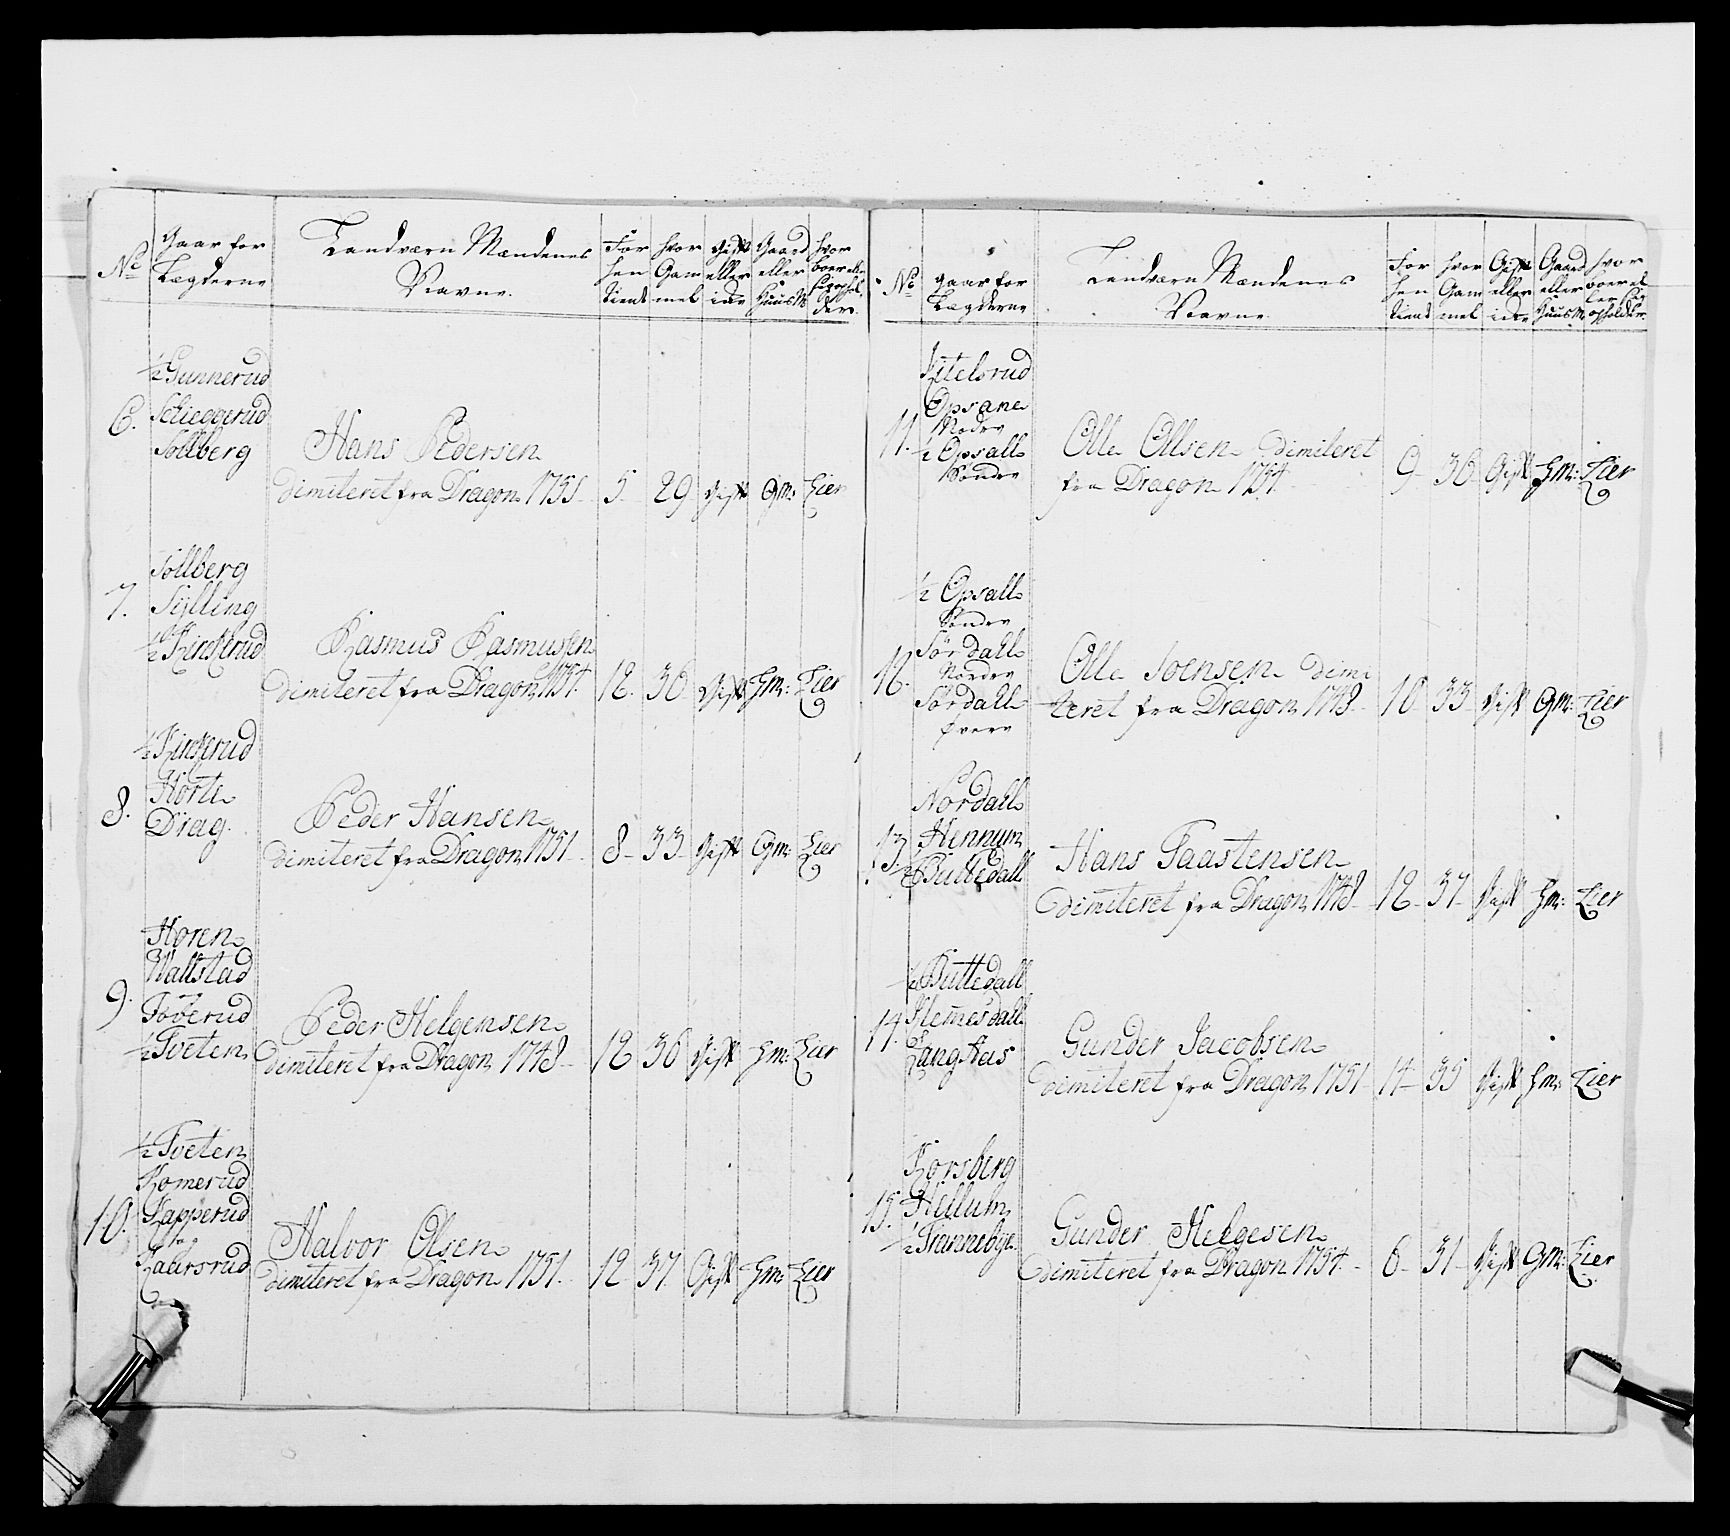 No
Gaar for
Lægderne
Landværn Mændenes
Navne.
For
hen
tient
hvor
Gam
mel
Gift
eller
icke
Gaard
eller
Huusm
hvor
boer eller
sig ophol
der.
6.
½ Gunnerud
Schieggerud
Sollberg
Hans Pedersen
dimiteret fra Dragon 1755 5 29 Gift Gm: Lier
7.
Sollberg
Sylling
½ Kinkerud
Rasmus Rasmussen
dimiteret fra Dragon 1754. 12. 36 Gift Hm: Lier
8.
½ Kinkerud
Horte
Drag.
Peder Hansen
dimiteret fra Dragon 1751 8 33 Gift Gm: Lier
9.
Horen
Wallstad
Toverud
½ Tveten
Peder Helgemsen
dimiteret fra Dragon 1748 12 36 Gift Hm: Lier
10.
½ Tveten
Komerud
Kapperud
og
Laursrud
Halvor Olsen
dimiteret fra Dragon 1751. 12 37 Gift Hm: Lier
No
gaar for
Lægderne
Landværn Mændenes
Navne
For
hen
tient
hvor
Gam
mel
Gift
eller
icke
Gaard
eller
Huusm
hvor
boer el
ler sig
opholder.
11.
Kitelsrud
Opsane
Nodre
½ Opsall
Søndre
Olle Ollsen dimiteret
fra Dragon 1754. 9 36 Gift Hm: Lier
12.
½ Opsall
Søndre
Sørdall
Nordre
Sørdall
øvere
Olle Joensen dimi
teret fra Dragon 1748 10 33 Gift Gm: Lier
13.
Nordall
Hennum
½ Buttedall
Hans Taastensen
dimiteret fra Dragon 1748 12 37 Gift Hm: Lier
14.
½ Buttedall
Hemmesdall
Langaas
Gunder Jacobsen
dimiteret fra Dragon 1751 14 35 Gift Hm: Lier
15.
Korsberg
Hellum
½ Trannebye
Gunder Helgesen
dimiteret fra Dragon 1754. 6 31 Gift Gm: Lier